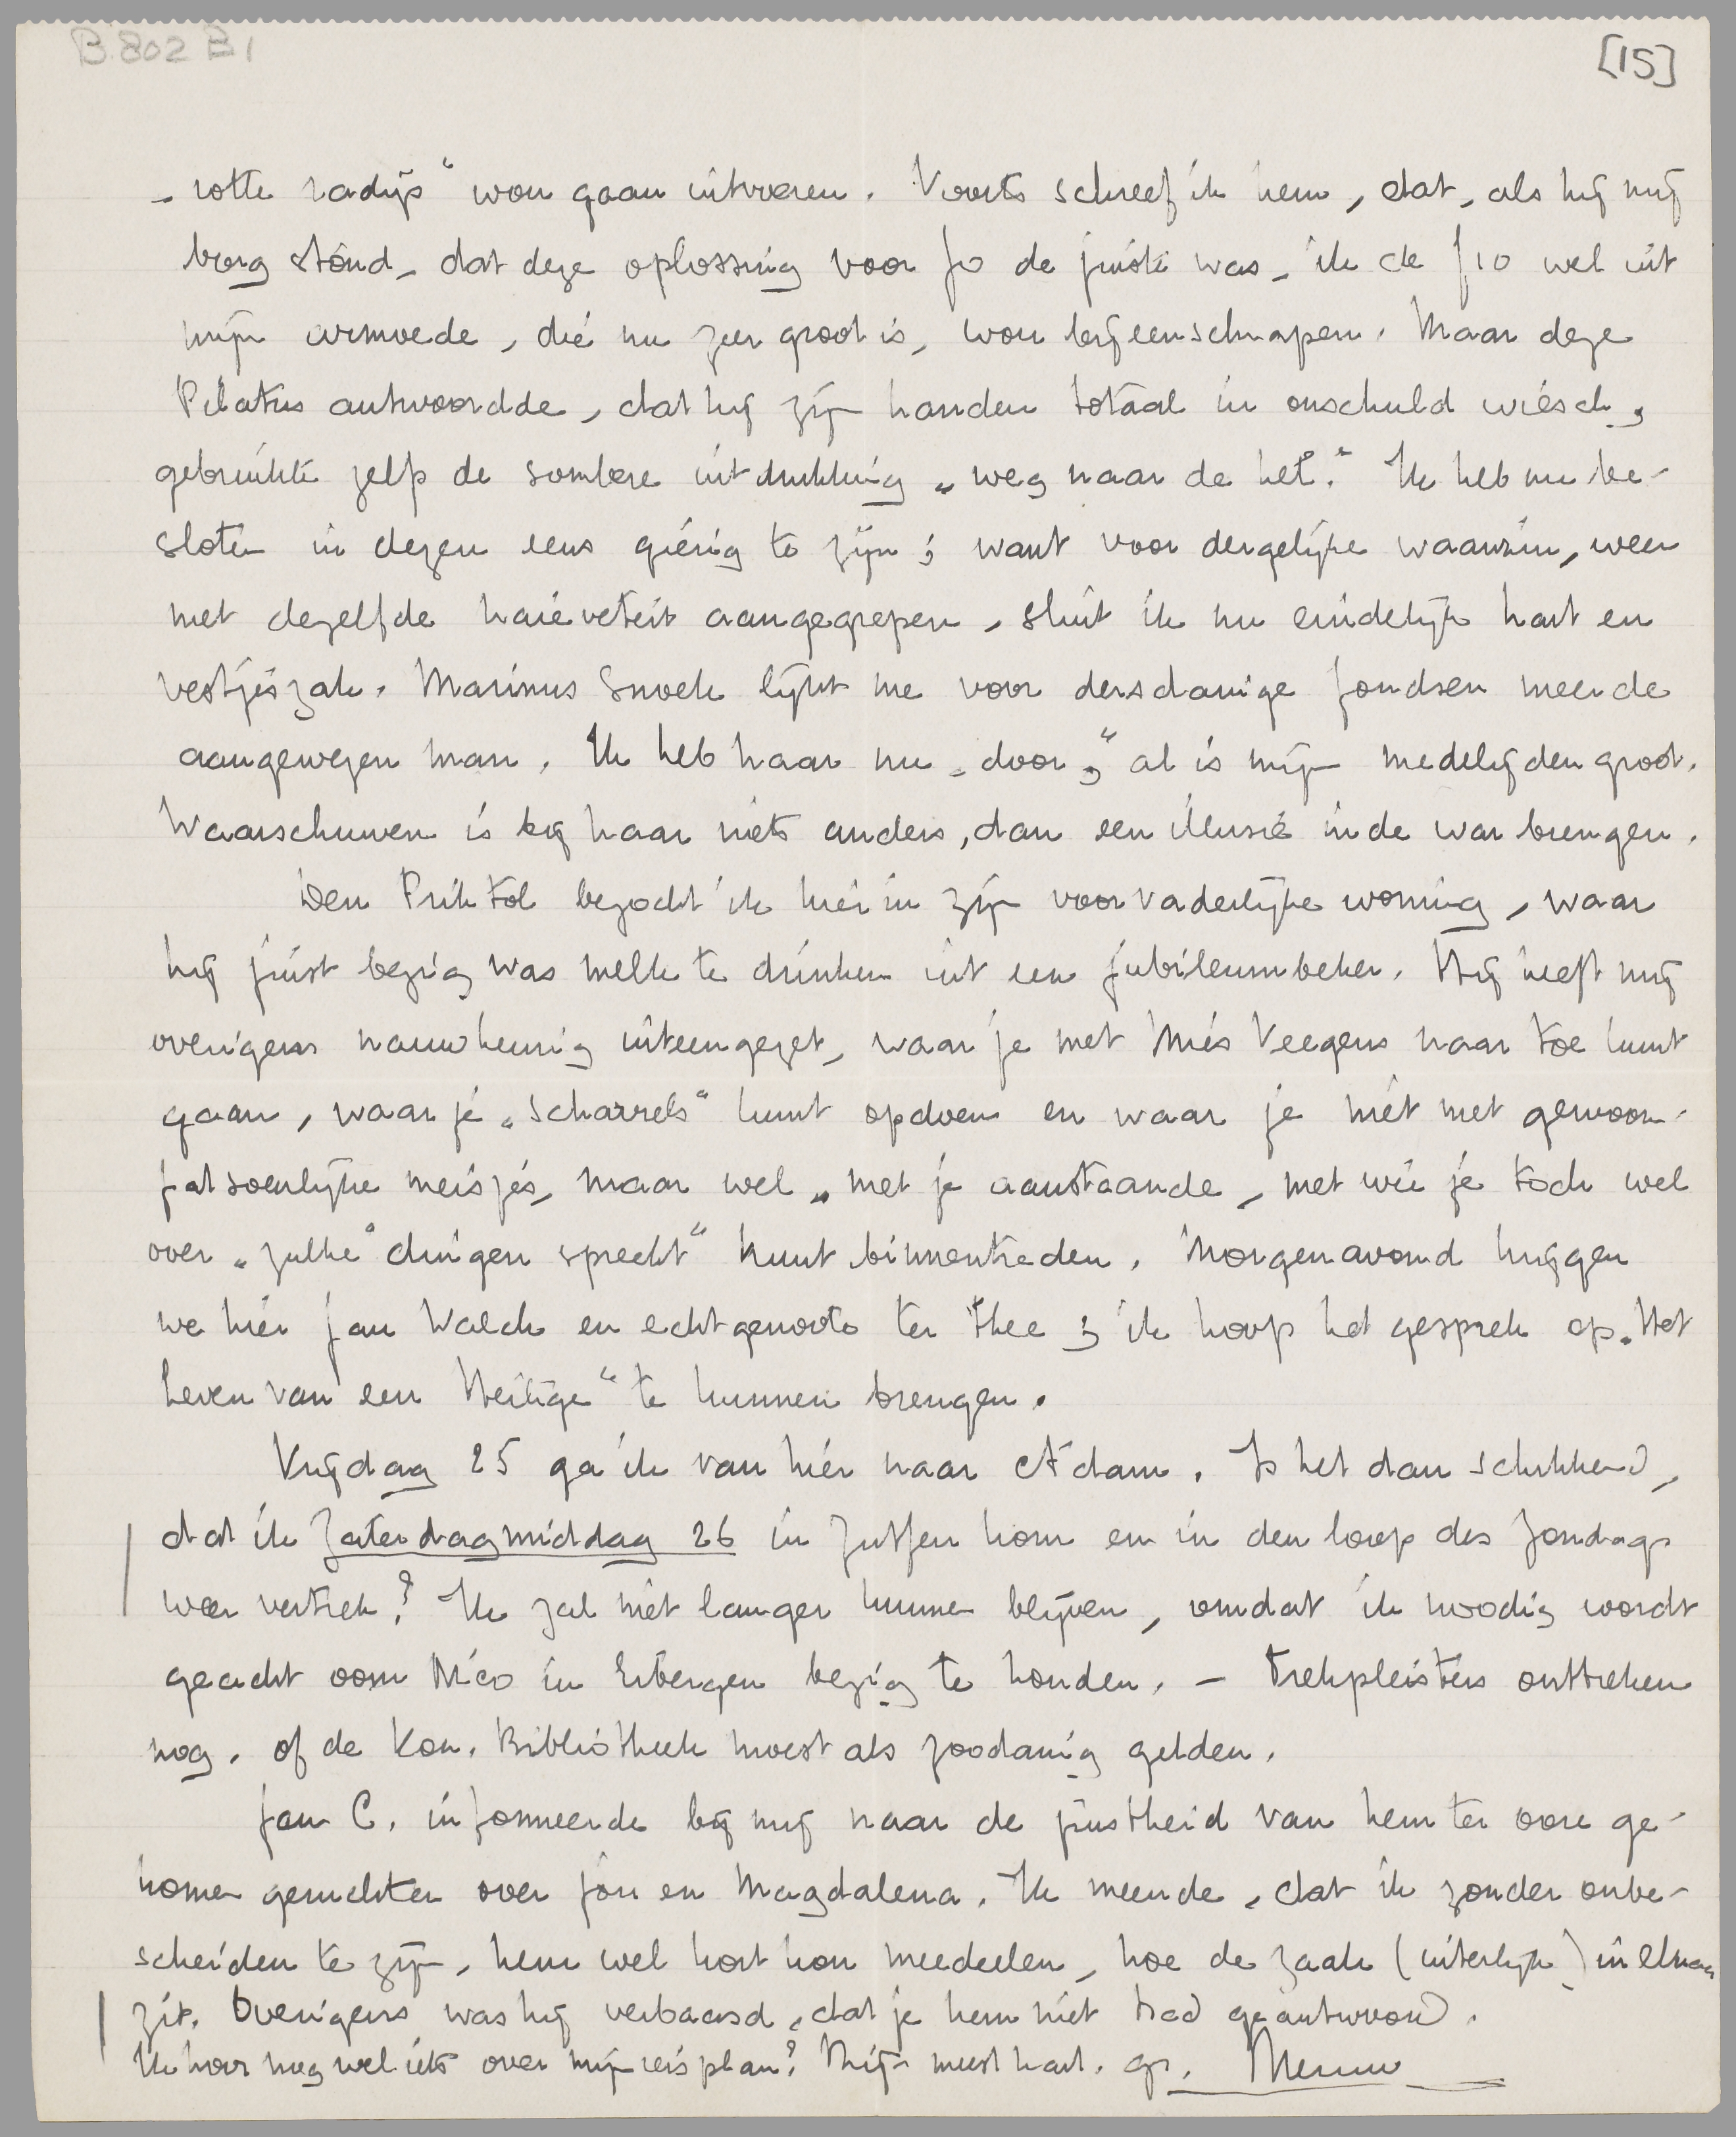 B 802 B1
[15]
„rotte radijs" wou gaan uitvoeren. Voorts schreef ik hem, dat, als hij mij
borg stond, dat deze oplossing voor Jo de juiste was, ik de f 10 wel uit
mijn armoede, die nu zeer groot is, wou bijeenschrapen. Maar deze
Pilatus antwoordde, dat hij zijn handen totaal in onschuld wiesch,
gebruikte zelfs de sombere uitdrukking „weg naar de hel." Ik heb nu be-
sloten in dezen eens gierig te zijn; want voor dergelijke waanzin, weer
met dezelfde naïeveteit aangegrepen, sluit ik nu eindelijk hart en
vestjeszak. Marinus Snoek lijkt me voor dersdanige fondsen meer de
aangewezen man. Ik heb haar nu „door", al is mijn medelijden groot.
Waarschuwen is bij haar niets anders, dan een illusie in de war brengen.
Den Priktol bezocht ik hier in zijn voorvaderlijke woning, waar
hij juist bezig was melk te drinken uit een jubileumbeker. Hij heeft mij
overigens nauwkeurig uiteengezet, waar je met Mies Veegens naar toe kunt
gaan, waar je „scharrels" kunt opdoen en waar je niet met gewoon-
fatsoenlijke meisjes, maar wel „met je aanstaande, met wie je toch wel
over „zulke" dingen spreekt" kunt binnentreden. Morgenavond krijgen
we hier Jan Walch en echtgenoote ter thee; ik hoop het gesprek op „Het
Leven van een Heilige" te kunnen brengen.
Vrijdag 25 ga ik van hier naar A'dam. Is het dan schikkend,
dat ik Zaterdagmiddag 26 in Zutfen kom en in den loop des Zondags
weer vertrek? Ik zal niet langer kunnen blijven, omdat ik noodig wordt
geacht oom Nico in Eibergen bezig te houden. – Trekpleisters ontbreken
nog. of de Kon. Bibliotheek moest als zoodanig gelden.
Jan C. informeerde bij mij naar de juistheid van hem ter oore ge-
komen geruchten over jou en Magdalena. Ik meende, dat ik zonder onbe-
scheiden te zijn, hem wel kort kon meedeelen, hoe de zaak (uiterlijk) in elkaar
zit. Overigens was hij verbaasd, dat je hem niet had geantwoord.
Ik hoor nog wel iets over mijn reisplan? Mijn meest hart. gr. Menno